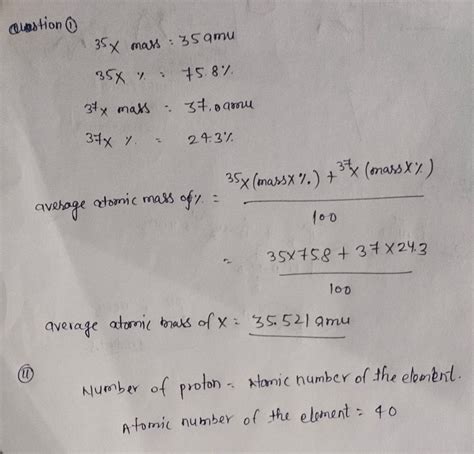 Question ①
35x mass : 35amu
35x % = 75.8%
37x mass = 37.0amu
37x % = 24.3%
average atomic mass of % = 35x (massx %) + 37x (massx%)
100
= 35x75.8 + 37x24.3
100
average atomic mass of x = 35.521 amu
ⓘⓘ
Number of proton = Atomic number of the element.
Atomic number of the element = 40